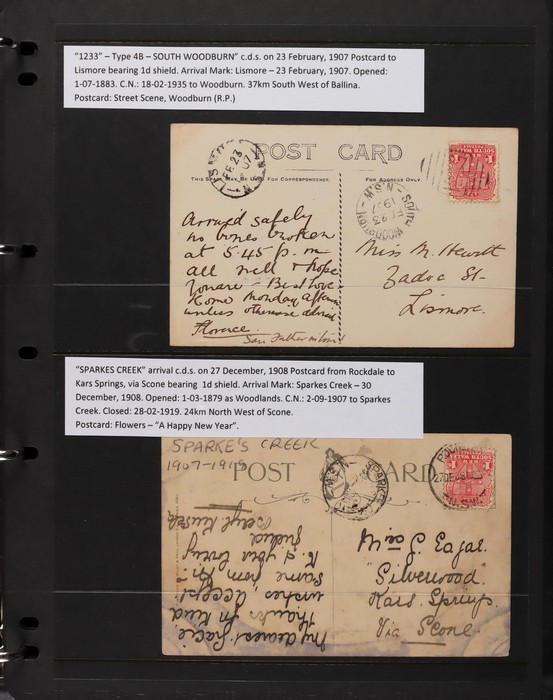 "1233" – Type 4B – SOUTH WOODBURN" c.d.s. on 23 February, 1907 Postcard to
Lismore bearing 1d shield. Arrival Mark: Lismore – 23 February, 1907. Opened:
1-07-1883. C.N.: 18-02-1935 to Woodburn. 37km South West of Ballina.
Postcard: Street Scene, Woodburn (R.P.)
POST CARD
THIS SPACE MAY BE USED FOR CORRESPONDENCE.
FOR ADDRESS ONLY.
LISMORE
FE 23
07
N.S.W
SOUTH WOODBURN
FE 23
1907
N.S.W
Arrived safely
no bones broken
at 5.45 p.m
all well & hope
you are – Best love
Home Monday
unless otherwise advised
Florence.
Miss M. Hewitt
Zadoc St-
Lismore.
"SPARKES CREEK" arrival c.d.s. on 27 December, 1908 Postcard from Rockdale to
Kars Springs, via Scone bearing 1d shield. Arrival Mark: Sparkes Creek – 30
December, 1908. Opened: 1-03-1879 as Woodlands. C.N.: 2-09-1907 to Sparkes
Creek. Closed: 28-02-1919. 24km North West of Scone.
Postcard: Flowers – "A Happy New Year".
SPARKE'S CREEK
1907-1919
POST CARD
SPARKE
N.S.W
27DE08
N.S.W
My dearest Gracie
Thanks for kind
wishes accept
same from Mr.
K. & your loving
friend
Beryl
J. Eagar.
"Silverwood"
Kars Springs.
Via Scone